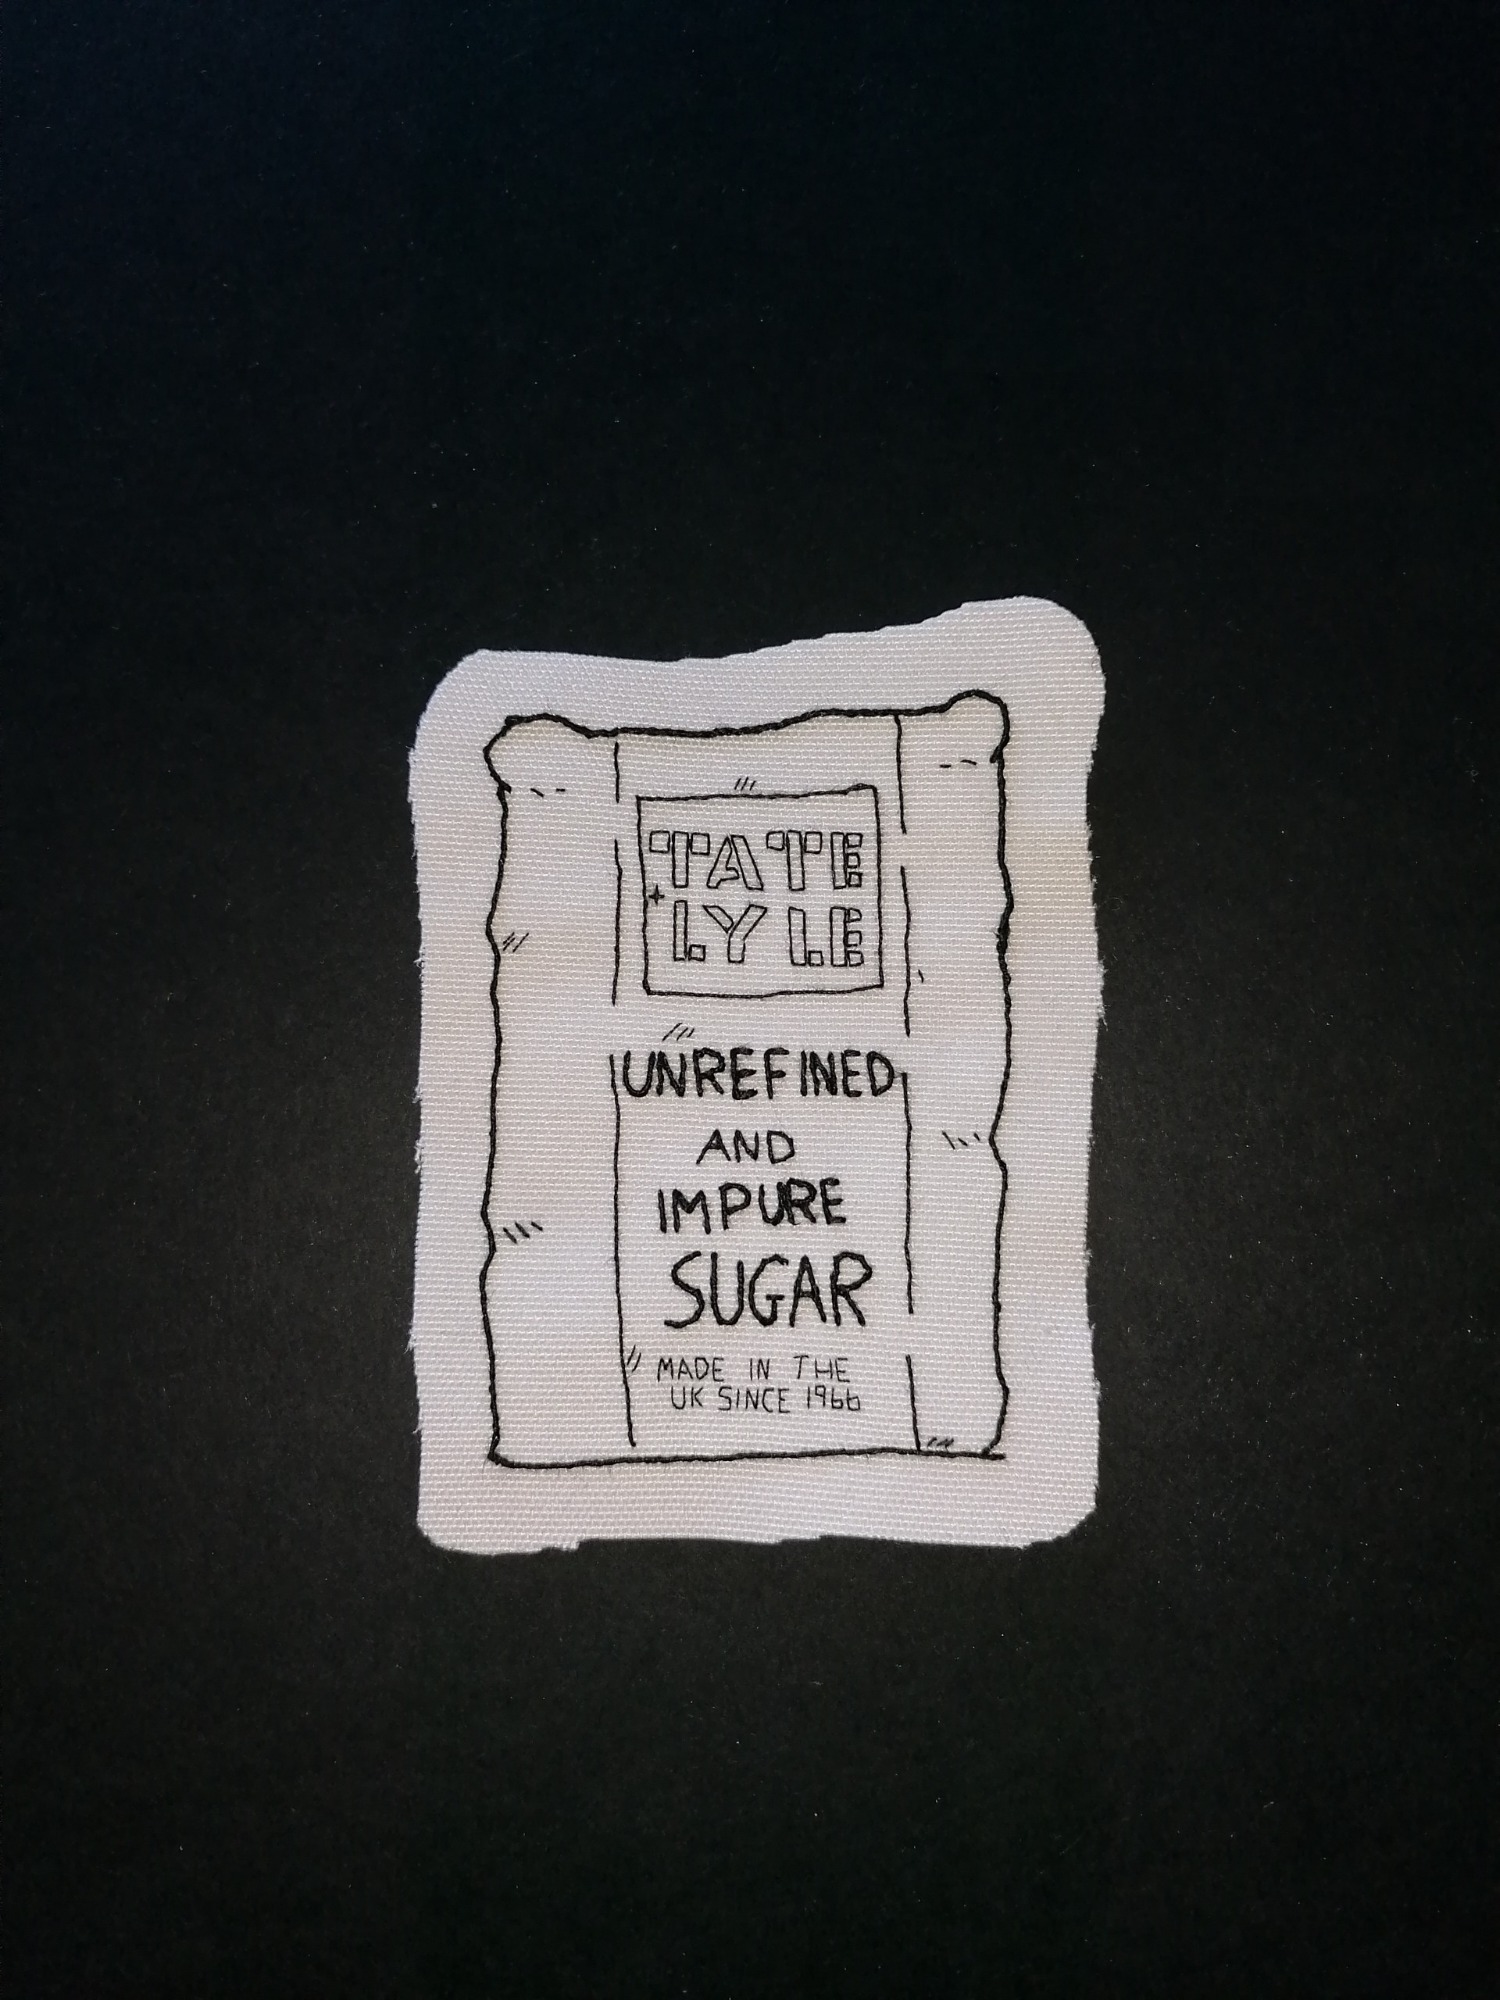 TATE
+ LYLE
UNREFINED
AND
IMPURE
SUGAR
MADE IN THE
UK SINCE 1966